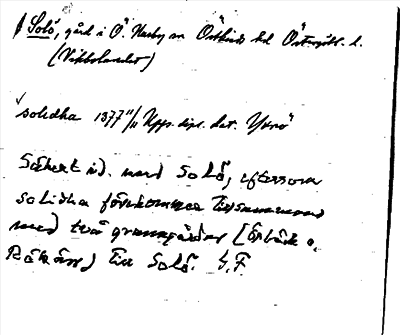 Solö, gård i Ö. Husby sn Östkinds hd Östergötl. l.
(Vikbolandet)
solidha 1377 11/11 Upps. dipl. dat.
Säkert id. med Solö, eftersom
solidha förekommer tillsammans
med två granngårdar [
) till Solö. S.F.